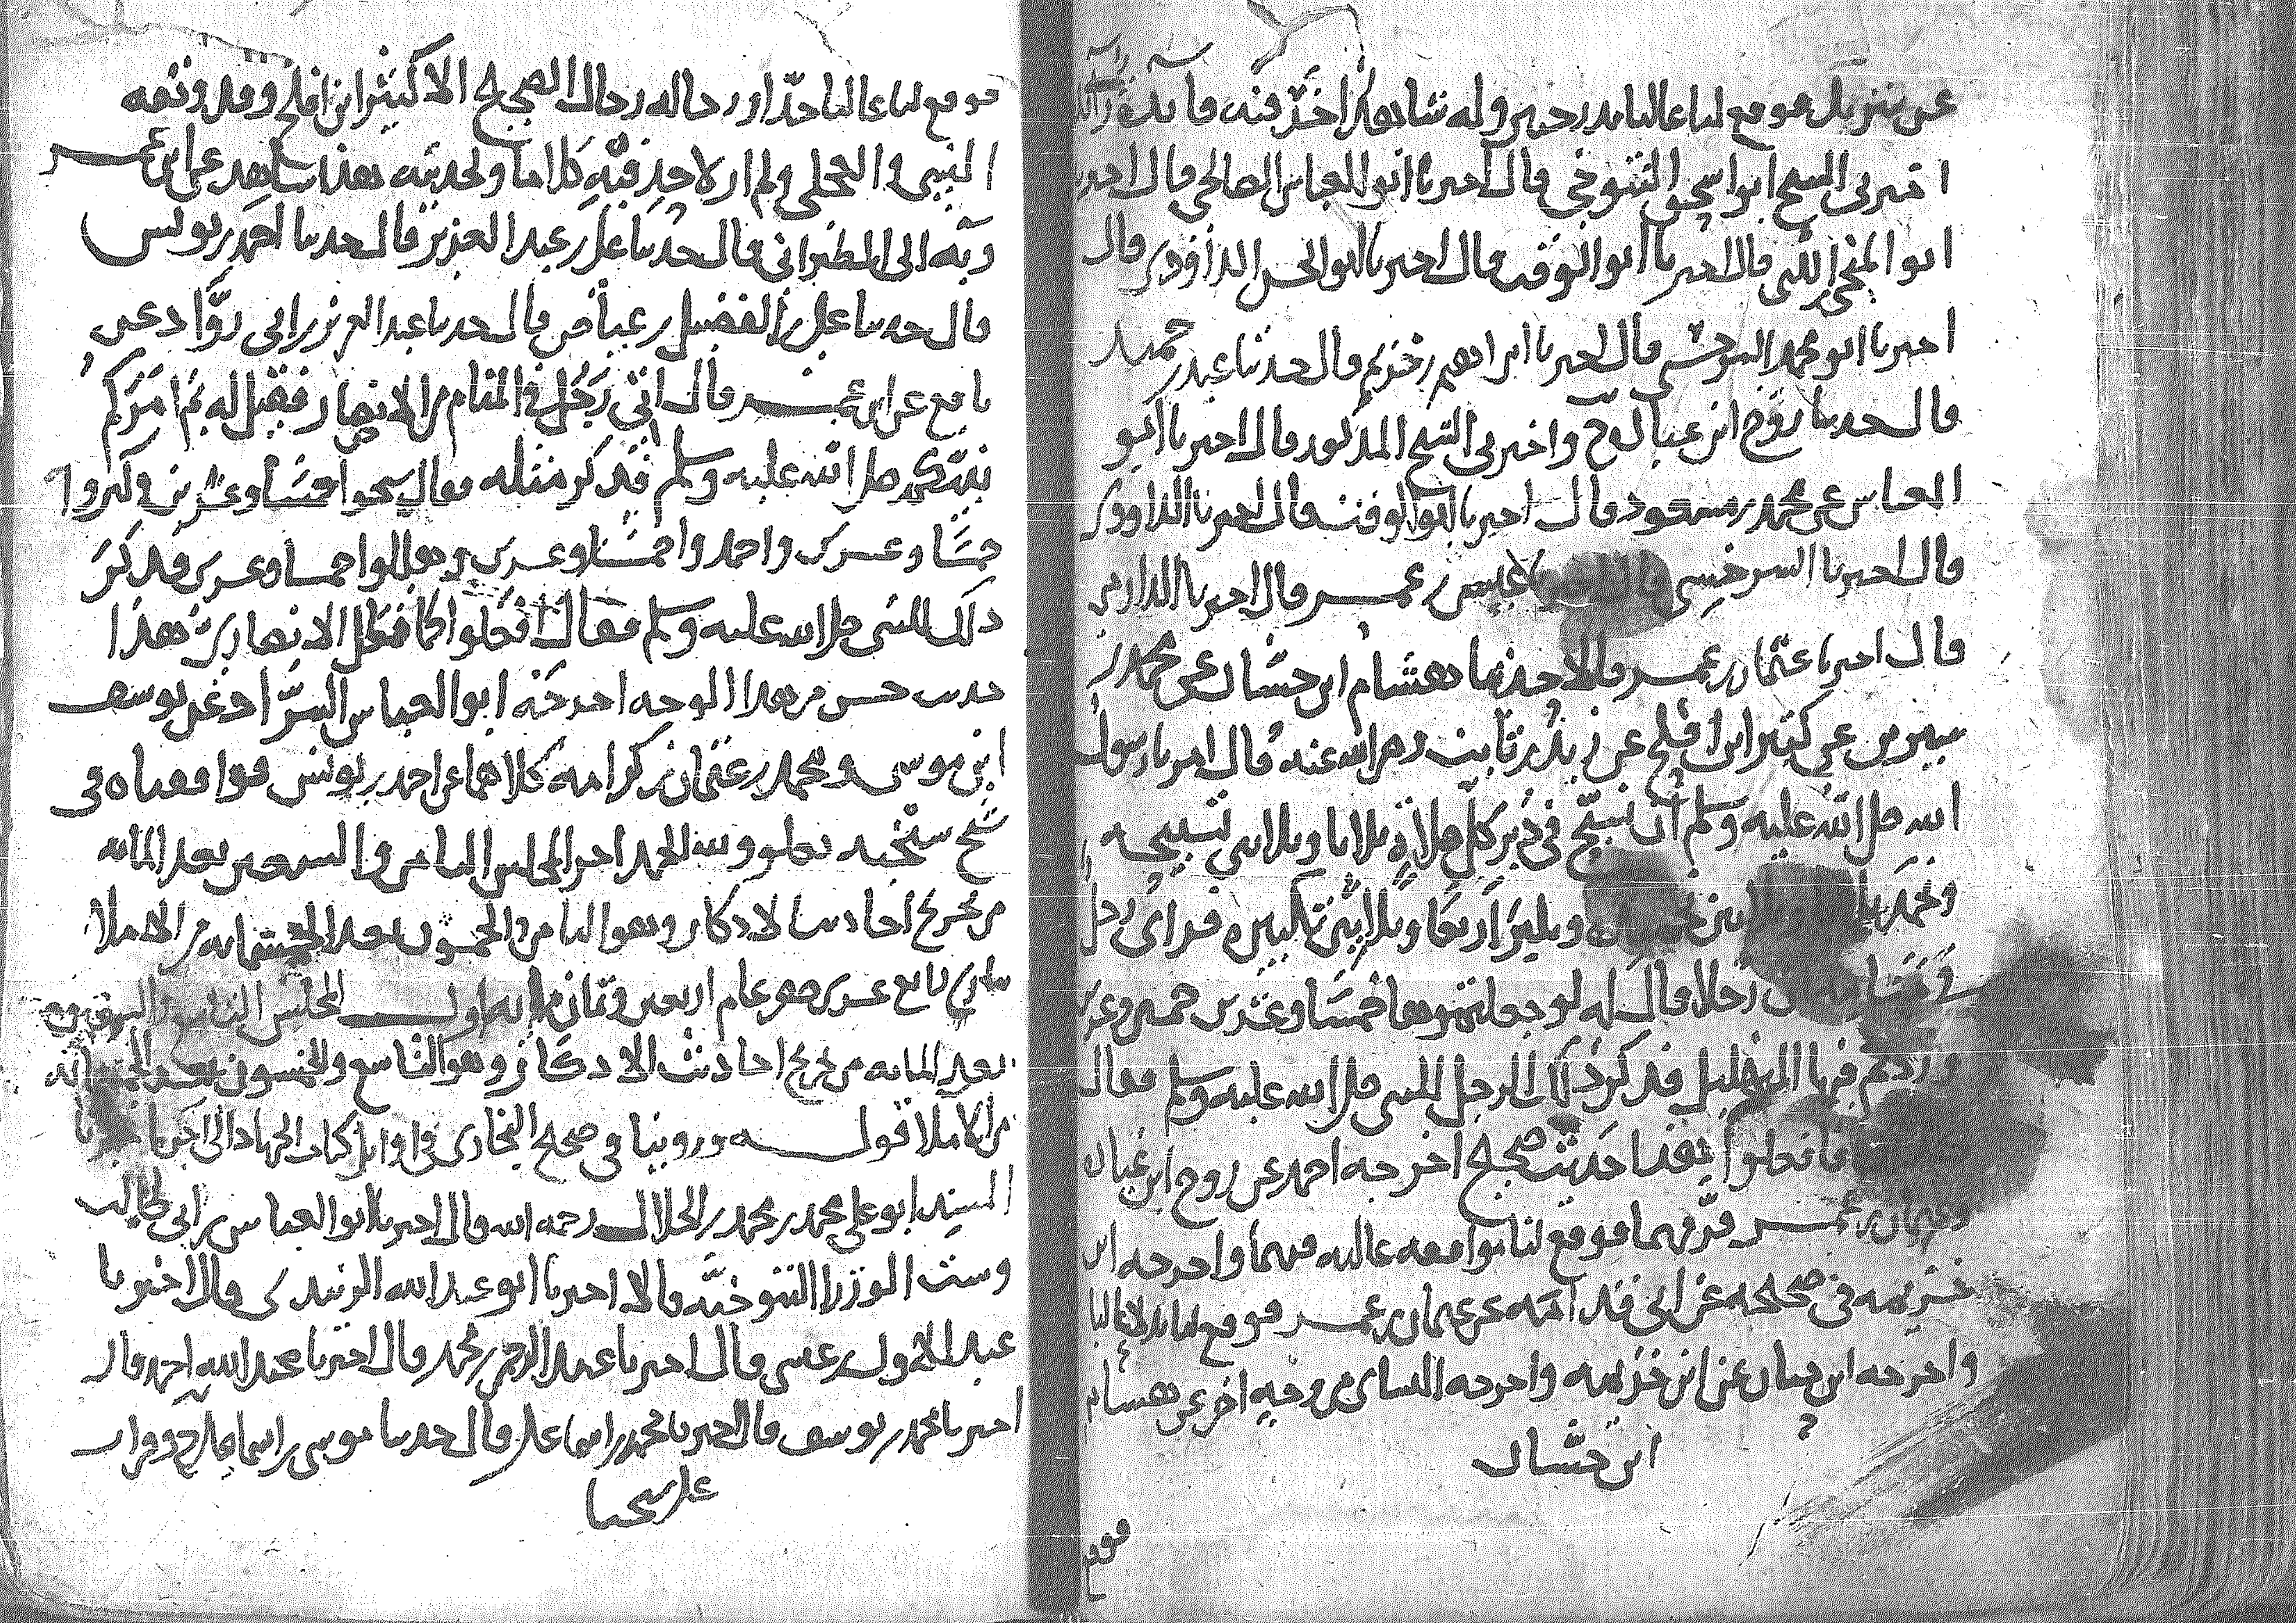 عن سرىل فوقع لنا عاليا بدرجتين وله شاهد اخر فيه فايدة زائدة
اخبرني الشيخ ابو اسحق التنوخي قال اخبرنا ابو العباس الصالحي قال اخبرنا
ابو المنجى ابن اللتي قال اخبرنا ابو الوقت قال اخبرنا ابو الحسن الداودي قال
اخبرنا ابو محمد السرخسي قال اخبرنا ابراهيم بن خزيم قال حدثنا عبد بن حميد
قال حدثنا روح ابن عبادة ح واخبرني الشيخ المذكور قال اخبرنا ابو
العباس عن محمد بن مسعود قال اخبرنا ابو الوقت قال اخبرنا الداوودي
قال اخبرنا السرخسي قال اخبرنا عيسى بن عمر قال اخبرنا الدارمي
قال اخبرنا عثمان بن عمر قالا حدثنا هشام ابن حسان عن محمد بن
سيرين عن كثير ابن افلح عن زيد بن ثابت رضي الله عنه قال امرنا رسول
الله صلى الله عليه وسلم ان نسبح في دبر كل صلاة ثلاثا وثلاثين تسبيحة
ونحمد ثلاثا وثلاثين تحميدة ونكبر اربعا وثلاثين تكبيرة فراى رجل
في منامه ان رجلا قال له لو جعلتموها خمسا وعشرين خمس وعشرين
وزدتم فيها التهليل فذكر ذلك الرجل للنبي صلى الله عليه وسلم فقال
فافعلوا هذا حديث صحيح اخرجه احمد عن روح ابن عبادة
وعثمان بن عمر فرقهما فوقع لنا موافقة عالية فيهما واخرجه ابن
خزيمة في صحيحه عن ابي قدامة عن عثمان بن عمر فوقع لنا بدلا عاليا
واخرجه ابن حبان عن ابن خزيمة واخرجه النسائي من وجه اخر عن هشام
ابن حسان
فوقع
فوقع لنا عاليا جدا ورجاله رجال الصحيح الا كثير ابن افلح وقد وثقه
النسي والعجلي ولم ار لاحد فيه كلاما ولحديثه هذا شاهد عن ابن عمر
وبه الى الطبراني قال حدثنا علي بن عبد العزيز قال حدثنا احمد بن يونس
قال حدثنا علي بن الفضيل بن عياض قال حدثنا عبد العزيز بن ابي رواد عن
نافع عن ابن عمر قال اتي رجل في المنام من الانصار فقيل له بم امركم
نبيكم صلى الله عليه وسلم فذكر مثله فقال سبحوا خمسا وعشرين وكبروا
خمسا وعشرين واحمدوا خمسا وعشرين وهللوا خمسا وعشرين فذكر
ذلك للنبي صلى الله عليه وسلم فقال افعلوا كما قال الانصاري هذا
حديث حسن من هذا الوجه اخرجه ابو العباس السراج عن يوسف
ابن موسى ومحمد بن عثمان بن كرامة كلاهما عن احمد بن يونس فوافقناه في
شيخ شيخيه بعلو ولله الحمد اخر المجلس الثامن والسبعين بعد المائة
من تخريج احاديث الاذكار وهو الثامن والخمسون بعد الخمسمائة من الاملاء
تاسع عشرى صفر عام اربعين وثمان مائة اول المجلس التاسع والسبعين
بعد المائة من تخريج احاديث الاذكار وهو التاسع والخمسون بعد الخمسمائة
من الاملاء قوله وروينا في صحيح البخاري في اوايل كتاب الجهاد الى اخره اخبرنا
المسند ابو علي محمد بن محمد بن الجلال رحمه الله قال اخبرنا ابو العباس بن ابي طالب
وست الوزرا التنوخية قالا اخبرنا ابو عبد الله الزبيدي قال اخبرنا
عبد الاول بن عيسى قال اخبرنا عبد الرحمن بن محمد قال اخبرنا عبد الله بن احمد قال
اخبرنا محمد بن يوسف قال اخبرنا محمد بن اسماعيل قال حدثنا موسى بن اسماعيل ح وقرات
على شيخنا